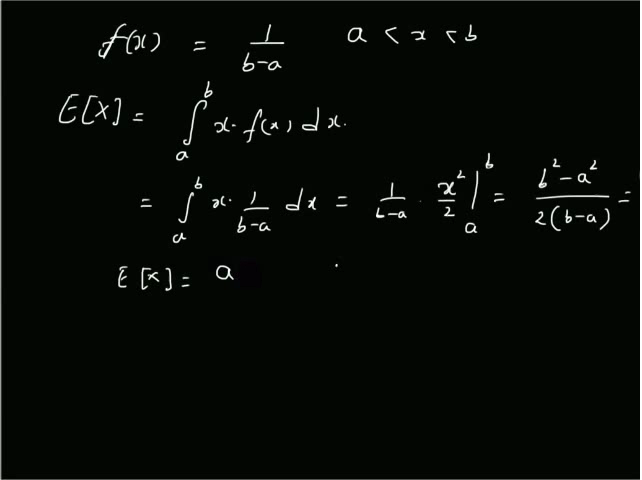 f(x) = 1/(b-a) a < x < b
E[X] = ∫_a^b x · f(x) dx.
= ∫_a^b x · 1/(b-a) dx = 1/(b-a) · x²/2 |_a^b = (b² - a²)/(2(b-a)) =
E[x] = a